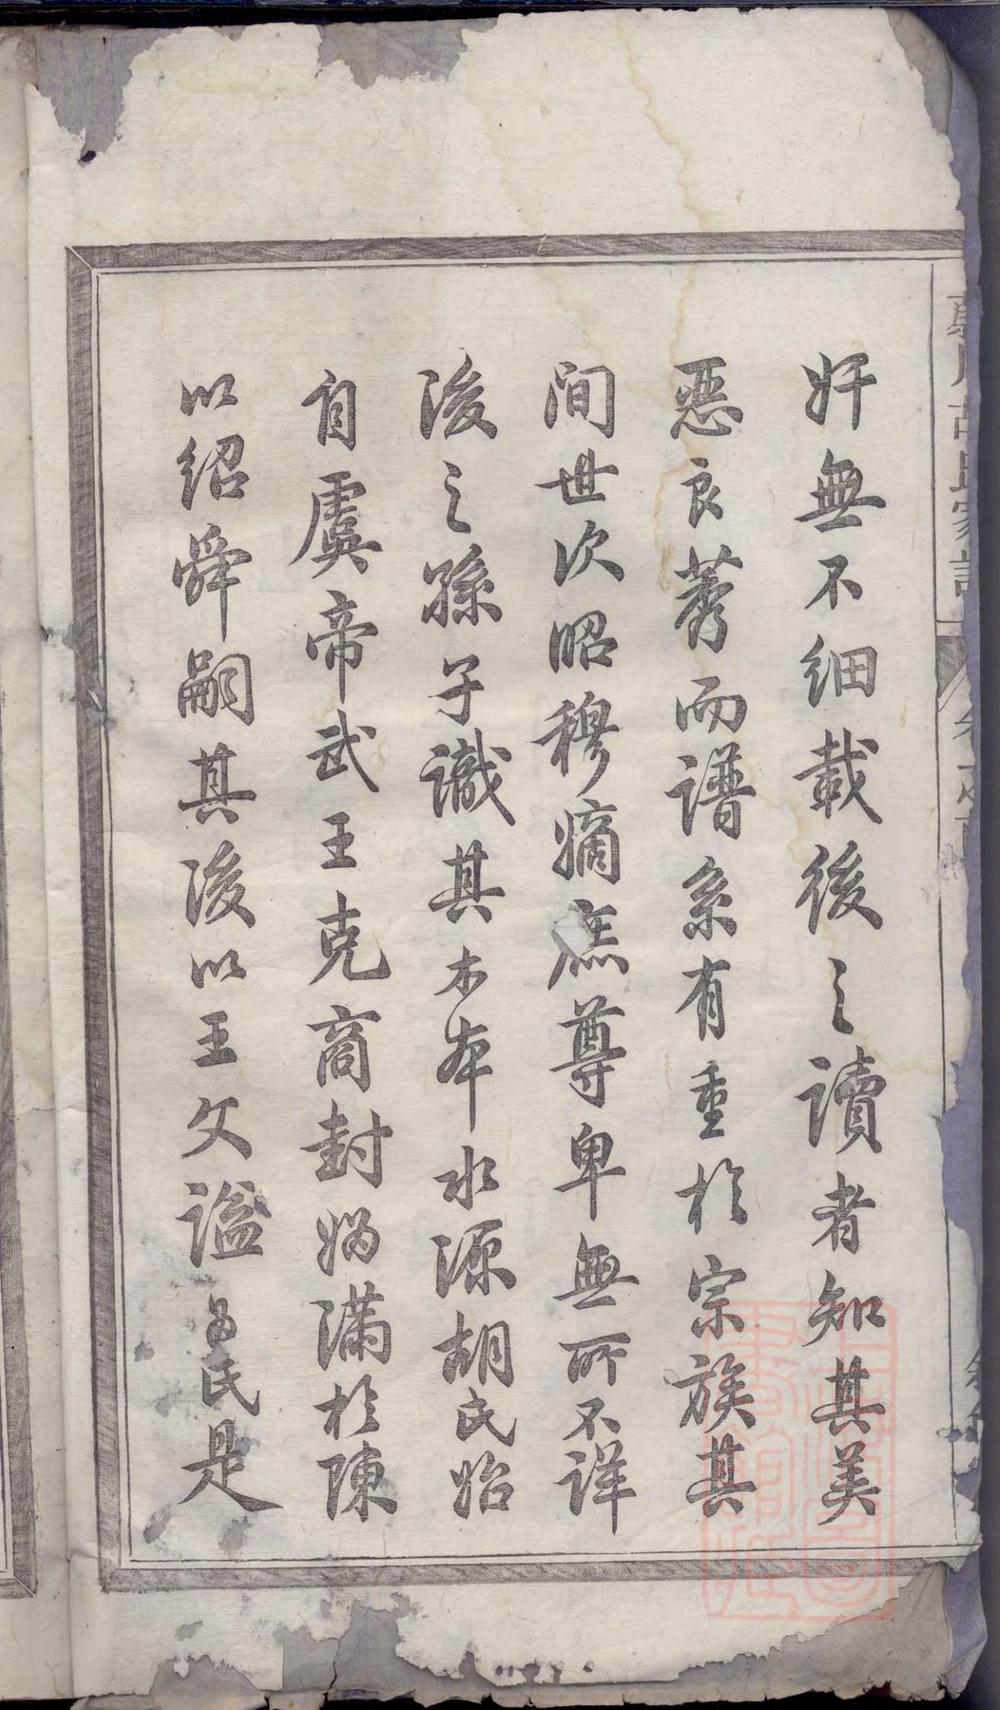 奸無不細載後之讀者知其美
惡良莠而譜系有重於宗族其
間世次昭穆嫡庶尊卑無所不詳
後之孫子識其木本水源胡氏始
自虞帝武王克商封媯滿於陳
以紹舜嗣其後以王父諡為氏是
胡氏家譜